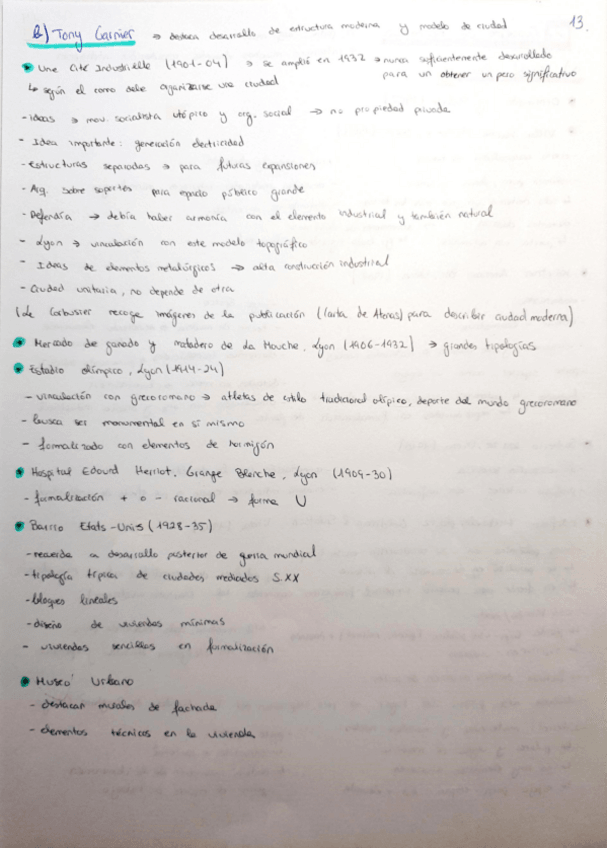 13.
B) Tony Garnier → destaca desarrollo de estructura moderna y modelo de ciudad
Une Cité Industrielle (1901-04) → se amplió en 1932 → nunca suficientemente desarrollado
↳ según el como debe organizarse una ciudad para un obtener un peso significativo
- ideas → mov. socialista utópico y org. social → no propiedad privada
- Idea importante: generación electricidad
- Estructuras separadas → para futuras expansiones
- Arq. sobre soportes para espacio público grande
- Defendía → debía haber armonía con el elemento industrial y también natural
- Lyon → vinculación con este modelo topográfico
- Ideas de elementos metalúrgicos → alta construcción industrial
- Ciudad unitaria, no depende de otra
(Le Corbusier recoge imágenes de la publicación (Carta de Atenas) para describir ciudad moderna)
Mercado de ganado y matadero de La Mouche, Lyon (1906-1932) → grandes tipologías
Estadio olímpico, Lyon (1914-24)
- vinculación con grecorromano → atletas de estilo tradicional olípico, deporte del mundo grecoromano
- busca ser monumental en sí mismo
- formalizado con elementos de hormigón
Hospital Edourd Herriot, Grange Blanche, Lyon (1909-30)
- formalización + o - racional → forma U
Barrio Etats-Unis (1928-35)
- recuerda a desarrollo posterior de guerra mundial
- tipología típica de ciudades mediados S.XX
- bloques lineales
- diseño de viviendas mínimas
- viviendas sencillas en formalización
Museo Urbano
- destacan murales de fachada
- elementos técnicos en la vivienda